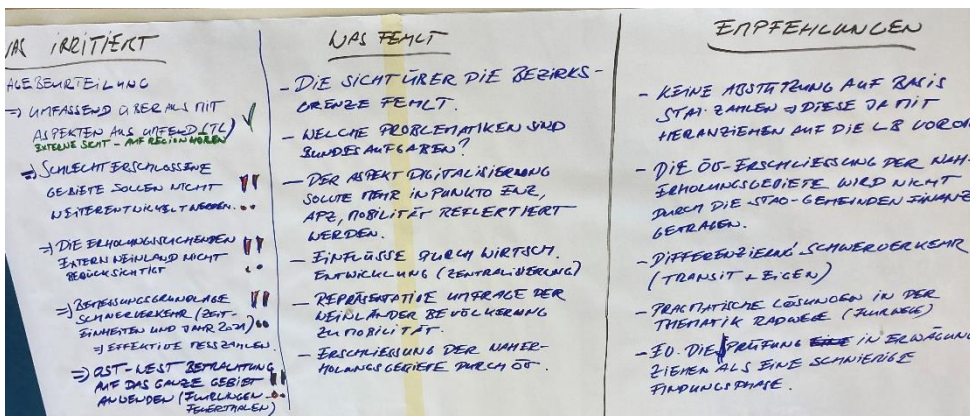 WAS IRRITIERT
LAGEBEURTEILUNG
=> UMFASSEND ÜBERALL MIT
ASPEKTEN AUS UMFELD (TL) ✓
EXTERNE SICHT - AUF REGION HÖREN
=> SCHLECHT ERSCHLOSSENE
GEBIETE SOLLEN NICHT !!
WEITERENTWICKELT WERDEN.
=> DIE ERHOLUNGSSUCHENDEN !!
EXTERN WEINLAND NICHT
BERÜCKSICHTIGT
=> BEMESSUNGSGRUNDLAGE !!
SCHWERVERKEHR (ZEIT-
EINHEITEN UND JAHR 2021)
=> EFFEKTIVE MESSZAHLEN.
=> OST-WEST BETRACHTUNG
AUF DAS GANZE GEBIET !!
ANWENDEN (FLURLINGEN-
FEUERTHALEN)
WAS FEHLT
- DIE SICHT ÜBER DIE BEZIRKS-
GRENZE FEHLT.
- WELCHE PROBLEMATIKEN SIND
BUNDESAUFGABEN?
- DER ASPEKT DIGITALISIERUNG
SOLLTE MEHR IN PUNKTO
APZ, MOBILITÄT REFLEKTIERT
WERDEN.
- EINFLÜSSE DURCH WIRTSCH.
ENTWICKLUNG (ZENTRALISIERUNG)
- REPRÄSENTATIVE UMFRAGE DER
WEINLÄNDER BEVÖLKERUNG
ZU MOBILITÄT.
- ERSCHLIESSUNG DER NAHER-
HOLUNGSGEBIETE DURCH ÖV.
EMPFEHLUNGEN
- KEINE ABSTÜTZUNG AUF BASIS
STAT. ZAHLEN => DIESE JA MIT
HERANZIEHEN AUF DIE LB
- DIE ÖV-ERSCHLIESSUNG DER NAH-
ERHOLUNGSGEBIETE WIRD NICHT
DURCH DIE STAO-GEMEINDEN FINANZ
GETRAGEN.
- DIFFERENZIERG' SCHWERVERKEHR
(TRANSIT + EIGEN)
- PRAGMATISCHE LÖSUNGEN IN DER
THEMATIK RADWEGE (FLURWEGE)
- EV. DIE PRÜFUNG IN ERWÄGUNG
ZIEHEN ALS EINE SCHWIERIGE
FINDUNGSPHASE.